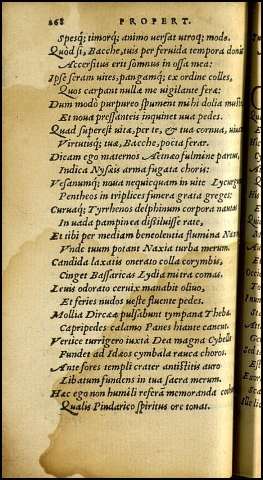 268 PROPERT.
Spesq; timorq; animo uersat utroq; modo.
Quòd si, Bacche, tuis per feruida tempora donis
Accersitus erit somnus in ossa mea:
Ipse seram uites, pangamq; ex ordine colles,
Quos carpant nullæ me uigilante feræ:
Dum modò purpureo spument mihi dolia musto,
Et noua pressantes inquinet uua pedes.
Quod superest uitæ, per te, & tua cornua, uiuam
Virtutisq; tuæ, Bacche, poeta ferar.
Dicam ego maternos Aetnæo fulmine partus,
Indica Nysæis arma fugata choris:
Vesanumq; noua nequicquam in uite Lycurgum
Pentheos in triplices funera grata greges:
Curuaq; Tyrrhenos delphinum corpora nautas
In uada pampinea dissiluisse rate,
Et tibi per mediam beneolentia flumina Naxon
Vnde tuum potant Naxia turba merum.
Candida laxatis onerato colla corymbis,
Cinget Bassaricas Lydia mitra comas.
Leuis odorato ceruix manabit oliuo,
Et feries nudos ueste fluente pedes.
Mollia Dircææ pulsabunt tympana Thebæ
Capripedes calamo Panes hiante canent.
Vertice turrigero iuxtà Dea magna Cybelle
Fundet ad Idæos cymbala rauca choros.
Ante fores templi crater antistitis auro
Libatum fundens in tua sacra merum.
Hæc ego non humili referã memoranda
Qualis Pindarico spiritus ore tonat.